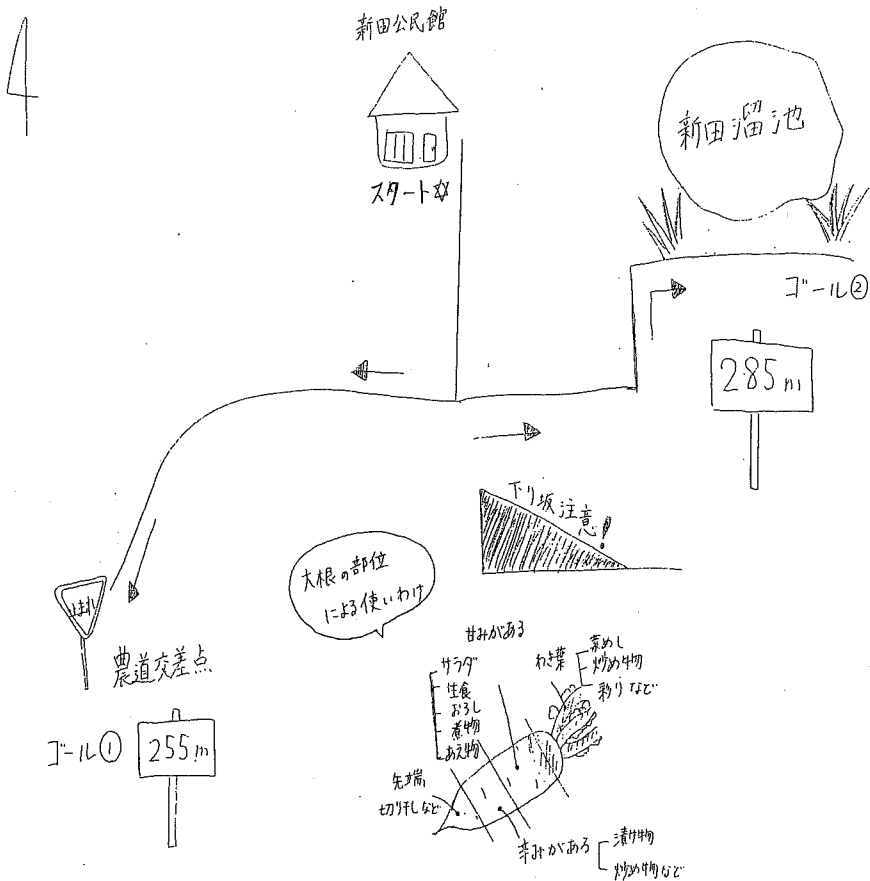 4
新田公民館
スタート☆
新田溜池
ゴール②
285m
下り坂注意!
止まれ
農道交差点
ゴール①
255m
大根の部位
による使いわけ
甘みがある
サラダ
生食
おろし
煮物
あえ物
わき葉
菜めし
炒め物
彩りなど
先端
切り干しなど
辛みがある
漬け物
炒め物など